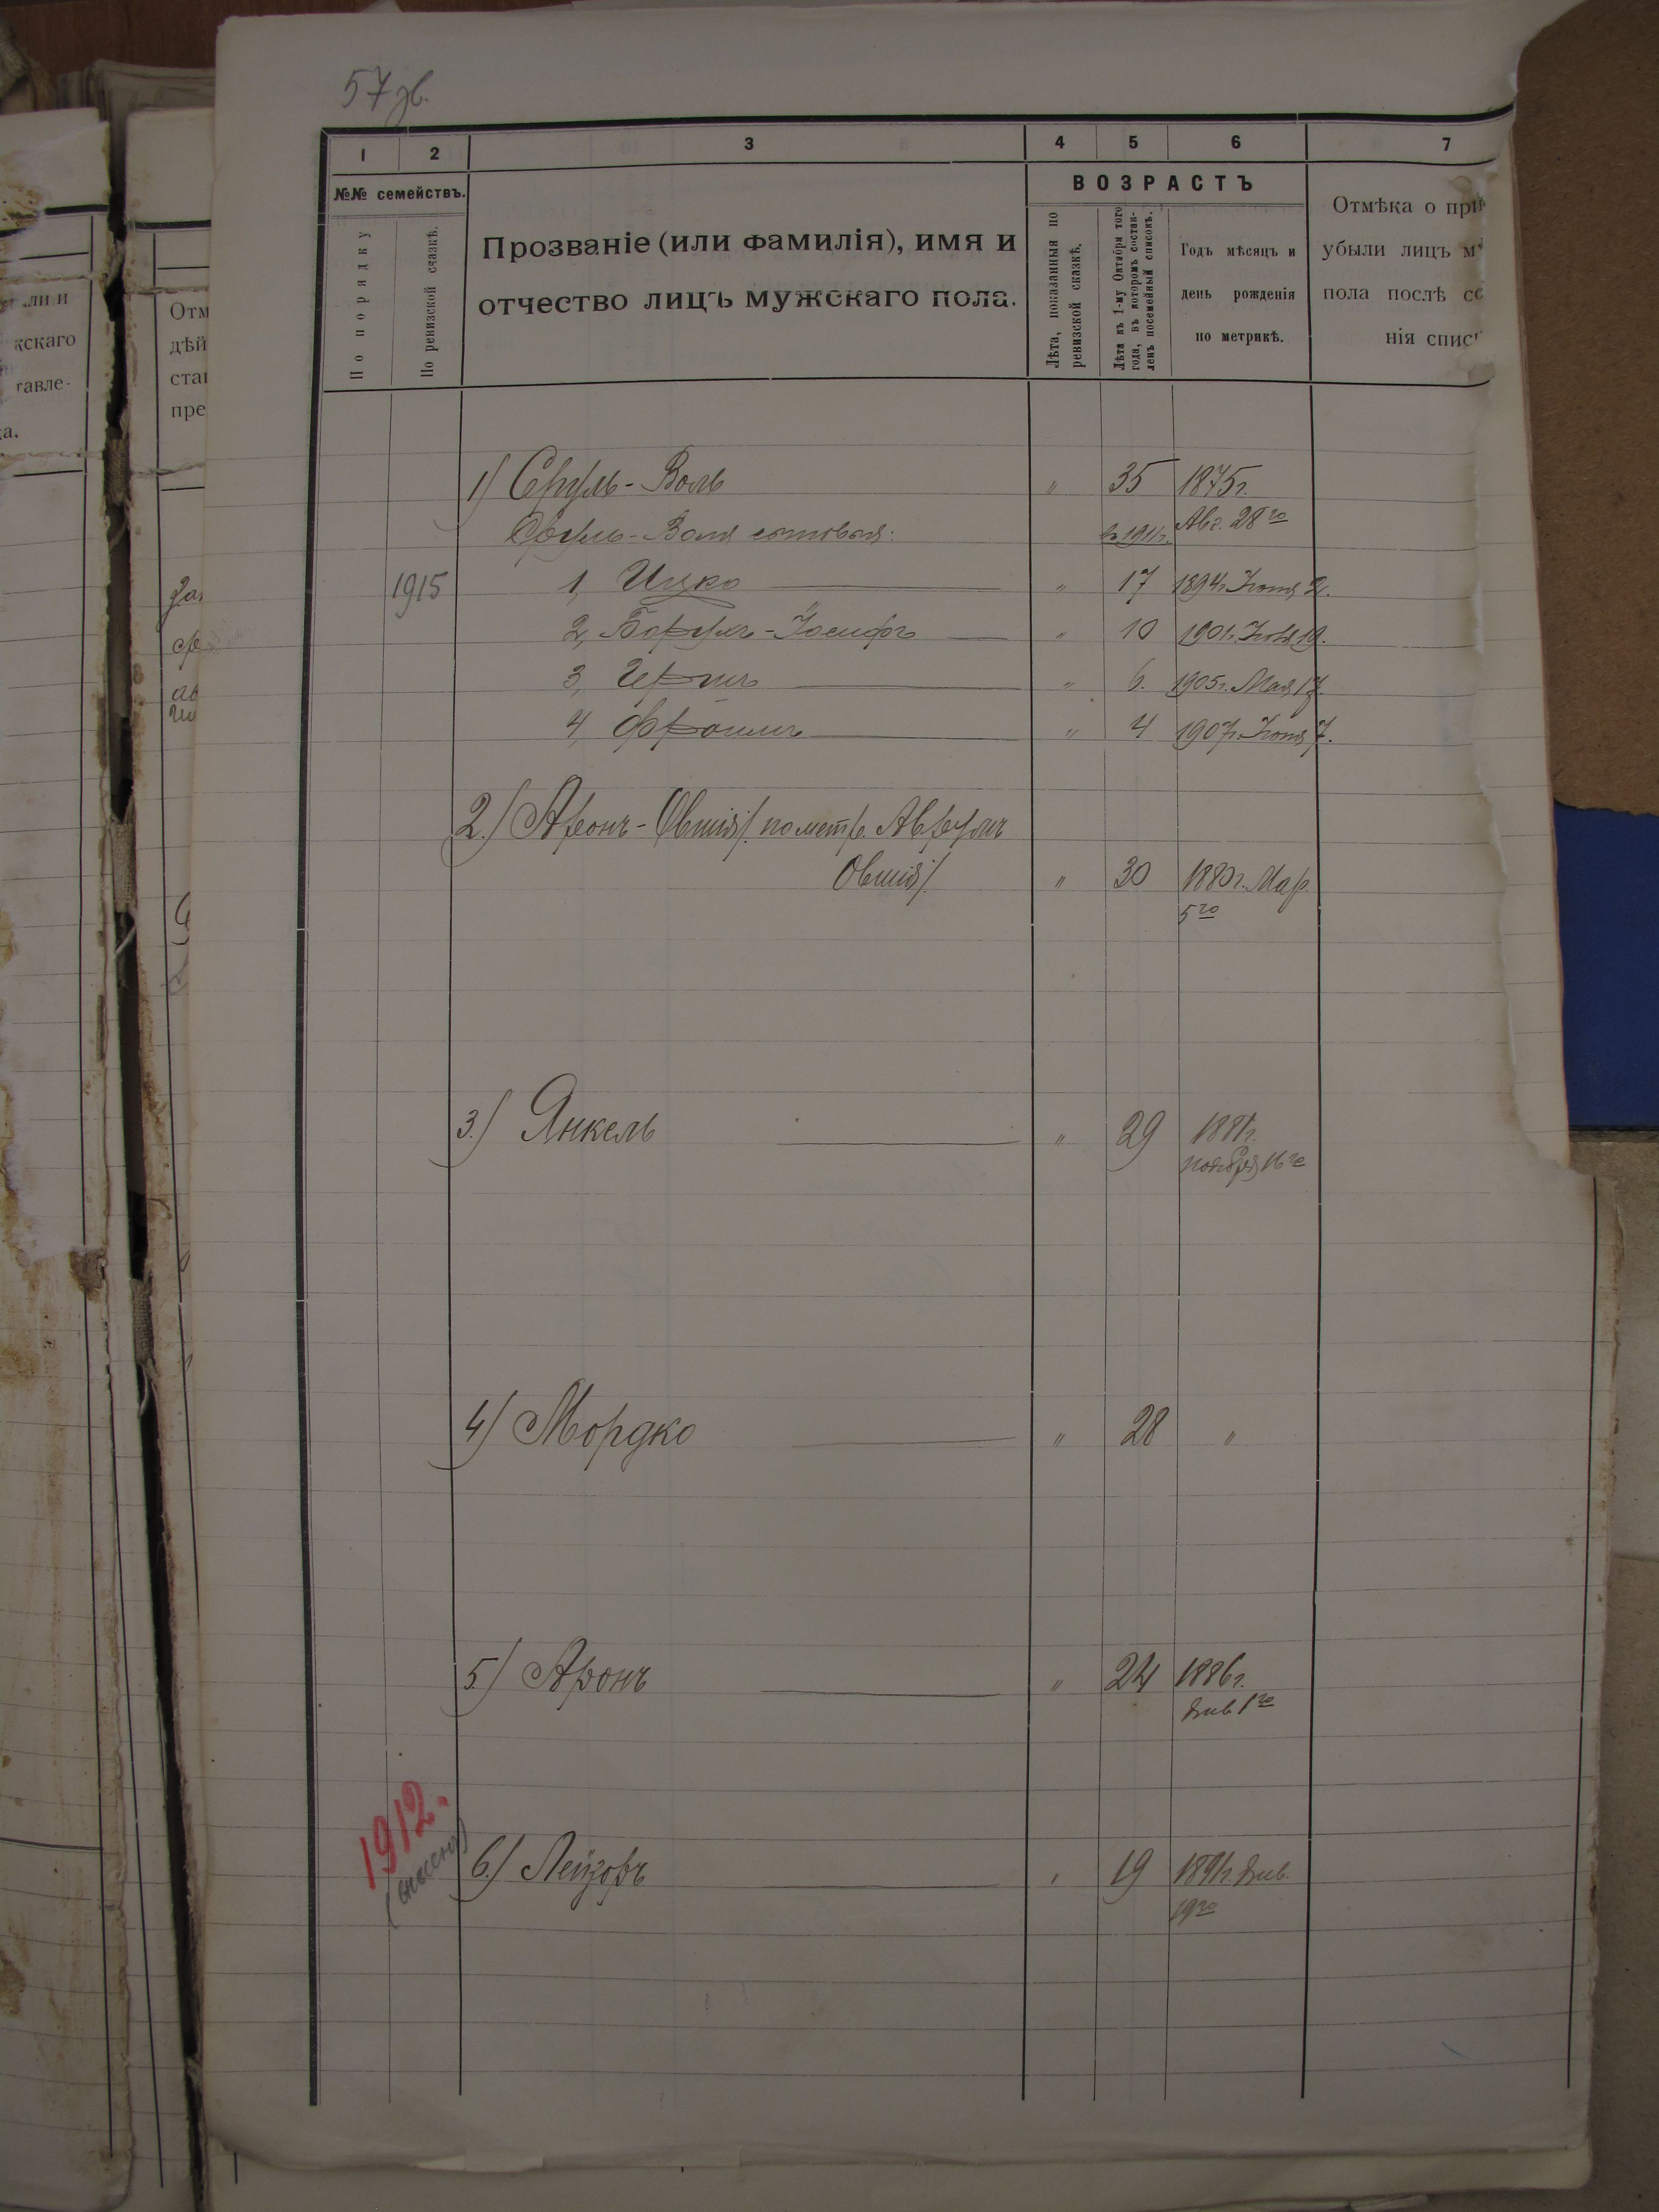 57 зв.
1 2 3 4 5 6 7
№№ семействъ.
По порядку
По ревизской сказкѣ.
Прозваніе (или фамилія), имя и
отчество лицъ мужскаго пола.
ВОЗРАСТЪ
Лѣта, показанныя по
ревизской сказкѣ.
Лѣта къ 1-му Октября того
года, въ которомъ состав-
ленъ посемейный списокъ.
Годъ мѣсяцъ и
день рожденія
по метрикѣ.
Отмѣка о при
убыли лицъ м
пола послѣ со
нія спис
1) Сруль-Воль " 35 1875г.
Авг. 28го
Сруль-Воля сыновья: въ 1911г.
1915 1, Ицко " 17 1894г. Іюня 2.
2, Борухъ-Іосифъ " 10 1901г.
3, Гершъ " 6. 1905г. Мая 17.
4, Фроимъ " 4 1907г. Іюня 7.
2.) Аронъ-Овшія /. по метр. Аврумъ
Овшія /. " 30 1880г. Мар.
5го
3.) Янкель " 29 1881г.
ноября 16го
4) Мордко " 28 "
5.) Аронъ " 24 1886г.
Янв. 1го
1912.
6.) Лейзоръ " 19 1891г. Янв.
19го
ли и
жскаго
тавле-
ка.
Отм
дѣй
стаı
пре